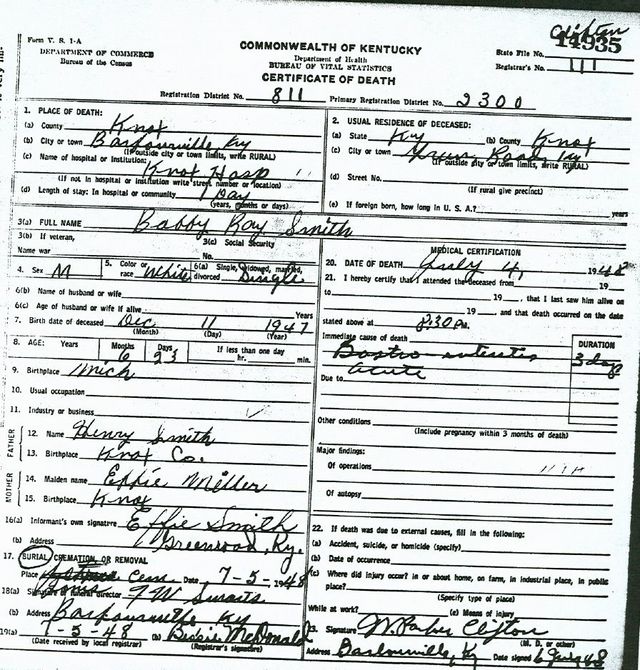 Form V. S. 1-A
DEPARTMENT OF COMMERCE
Bureau of the Census
COMMONWEALTH OF KENTUCKY
Department of Health
BUREAU OF VITAL STATISTICS
CERTIFICATE OF DEATH
Clifton
State File No. 14935
Registrar's No. 111
Registration District No. 811 Primary Registration District No. 2300
1. PLACE OF DEATH:
(a) County Knox
(b) City or town Barbourville, Ky
(If outside city or town limits, write RURAL)
(c) Name of hospital or institution: Knox Hosp
(If not in hospital or institution write street number or location)
(d) Length of stay: In hospital or community 1 Day
(years, months or days)
2. USUAL RESIDENCE OF DECEASED:
(a) State Ky (b) County Knox
(c) City or town Ky
(If outside city or town limits, write RURAL)
(d) Street No.
(If rural give precinct)
(e) If foreign born, how long in U. S. A.? years
3(a) FULL NAME Bobby Ray Smith
3(b) If veteran, 3(c) Social Security
Name war No.
4. Sex M 5. Color or race White 6(a) Single, widowed, married, divorced Single
6(b) Name of husband or wife
6(c) Age of husband or wife if alive Years
7. Birth date of deceased Dec 11 1947
(Month) (Day) (Year)
8. AGE: Years Months Days If less than one day
6 23 hr. min.
9. Birthplace Mich
10. Usual occupation
11. Industry or business
FATHER
12. Name Henry Smith
13. Birthplace Knox Co.
MOTHER
14. Maiden name Effie Miller
15. Birthplace Knox
16(a) Informant's own signature Effie Smith
(b) Address Greenroad, Ky.
17. BURIAL, CREMATION, OR REMOVAL
Place Cem Date 7-5-1948
18(a) Signature director
(b) Address Barbourville Ky
19(a) 7-5-48 (b) Bessie McDonald
(Date received by local registrar) (Registrar's signature)
MEDICAL CERTIFICATION
20. DATE OF DEATH July 4, 1948
21. I hereby certify that I attended the deceased from 19
to 19 , that I last saw him alive on
19 , and that death occurred on the date
stated above at 2:30 Pm.
Immediate cause of death DURATION
Gastro-enteritis 3 days
acute
Due to
Other conditions
(Include pregnancy within 3 months of death)
Major findings:
Of operations
Of autopsy
22. If death was due to external causes, fill in the following:
(a) Accident, suicide, or homicide (specify)
(b) Date of occurrence
(c) Where did injury occur? in or about home, on farm, in industrial place, in public
place?
(Specify type of place)
While at work? (e) Means of injury
23. Signature Clifton
(M. D. or other)
Address Barbourville, Ky Date signed